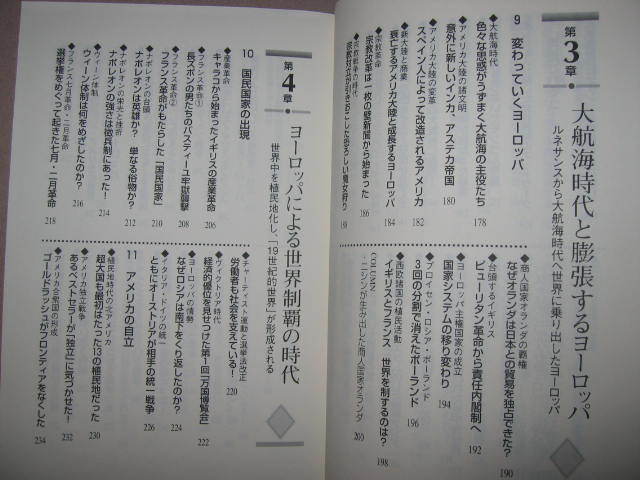 第3章
大航海時代と膨張するヨーロッパ
ルネサンスから大航海時代へ世界に乗り出したヨーロッパ
9 変わっていくヨーロッパ
◆大航海時代
色々な思惑がうずまく大航海の主役たち 178
◆アメリカ大陸の諸文明
意外に新しいインカ、アステカ帝国 180
◆アメリカ大陸の変革
スペイン人によって改造されるアメリカ 182
◆新大陸と商業
衰亡するアメリカ大陸と成長するヨーロッパ 184
◆宗教革命
宗教改革は一枚の壁新聞から始まった 186
◆宗教戦争の時代
宗教対立が引きおこした恐ろしい魔女狩り 188
◆商人国家オランダの覇権
なぜオランダは日本との貿易を独占できた? 190
◆台頭するイギリス
ピューリタン革命から責任内閣制へ 192
◆ヨーロッパ主権国家の成立
国家システムの移り変わり 194
◆プロイセン・ロシア・ポーランド
3回の分割で消えたポーランド 196
◆西欧諸国の植民活動
イギリスとフランス 世界を制するのは? 198
COLUMN
・ニシンが生み出した商人国家オランダ 200
第4章
ヨーロッパによる世界制覇の時代
世界中を植民地化し、「19世紀的世界」が形成される
10 国民国家の出現
◆産業革命
キャラコから始まったイギリスの産業革命 206
◆フランス革命①
長ズボンの男たちのバスティーユ牢獄襲撃 208
◆フランス革命②
フランス革命がもたらした「国民国家」 210
◆ナポレオンの台頭
ナポレオンは英雄か? 単なる俗物か? 212
◆ナポレオンの栄光と挫折
ナポレオンの強さは徴兵制にあった! 214
◆ウィーン体制
ウィーン体制は何をめざしたのか? 216
◆フランス七月革命・二月革命
選挙権をめぐって起きた七月・二月革命 218
◆チャーティスト運動と選挙法改正
労働者も社会を支えている! 220
◆ヴィクトリア時代
経済的優位を見せつけた第1回「万国博覧会」 222
◆ヨーロッパの情勢
なぜロシアは南下をくり返したのか? 224
◆イタリア・ドイツの統一
ともにオーストリアが相手の統一戦争 226
11 アメリカの自立
◆植民地時代の北アメリカ
超大国も最初はたった13の植民地だった 230
◆アメリカ独立戦争
あるベストセラーが“独立”に気づかせた! 232
◆アメリカ合衆国の形成
ゴールドラッシュがフロンティアをなくした 234